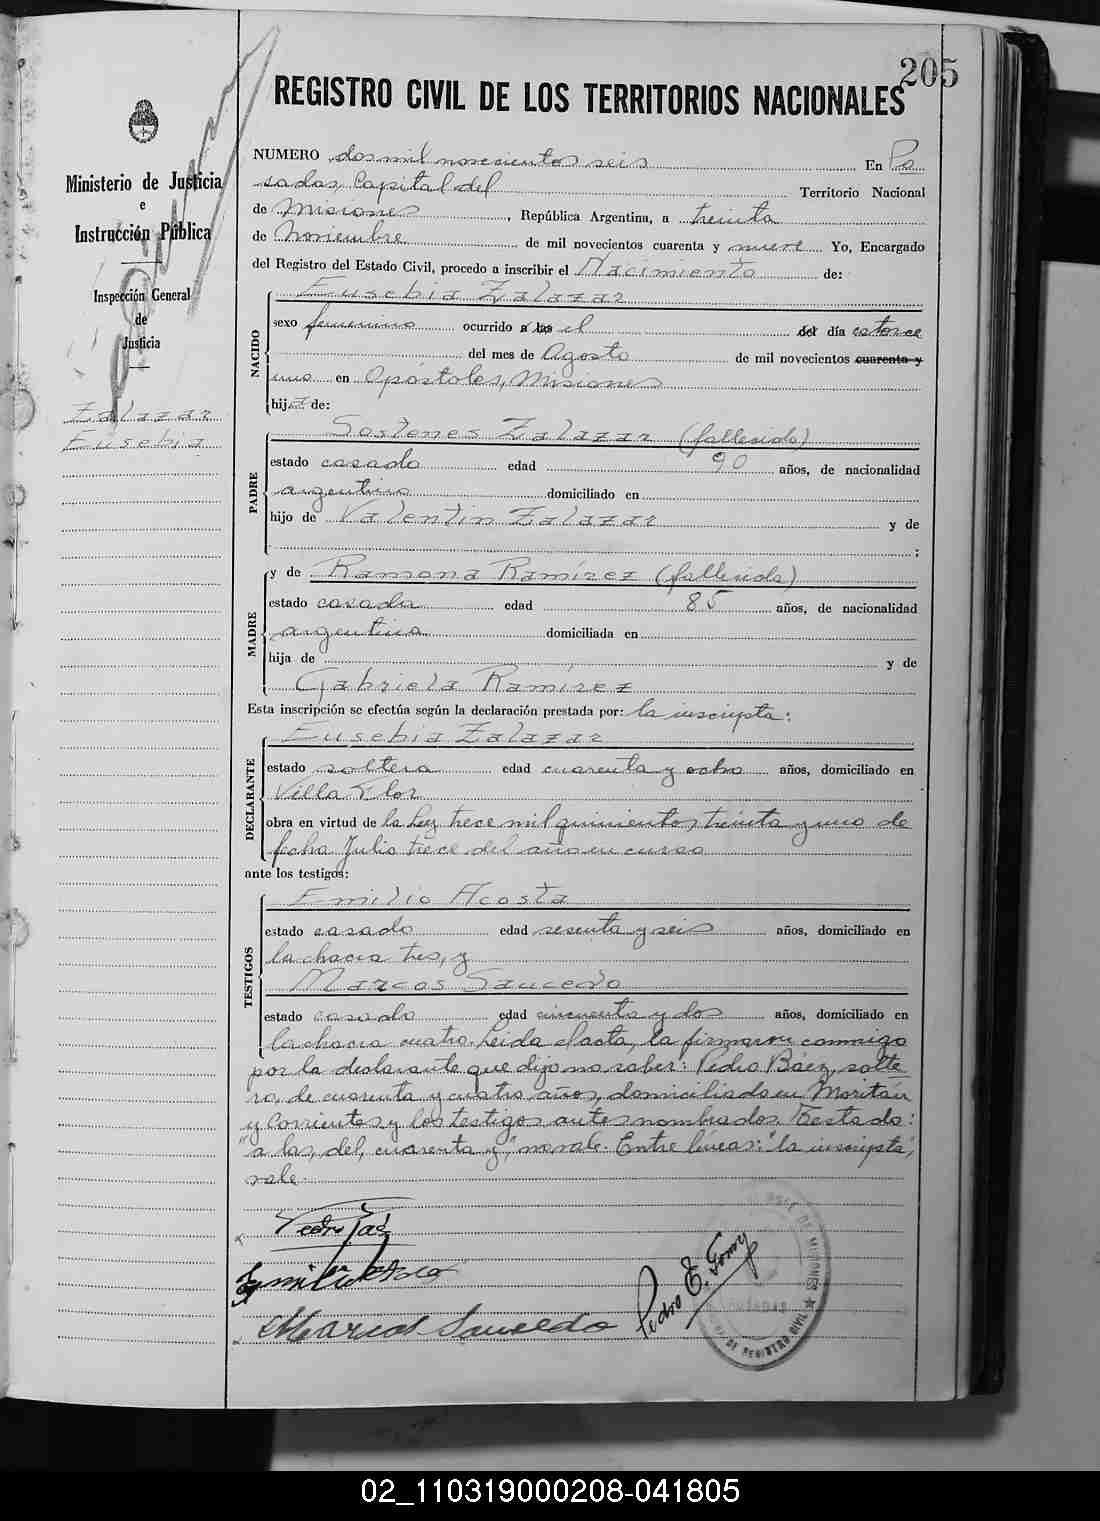 205
REGISTRO CIVIL DE LOS TERRITORIOS NACIONALES
Ministerio de Justicia
e
Instrucción Pública
Inspección General
de
Justicia
Zalazar
Eusebia
NUMERO dos mil novecientos seis En Po
sadas, Capital del Territorio Nacional
de Misiones, República Argentina, a treinta
de Noviembre de mil novecientos cuarenta y nueve Yo, Encargado
del Registro del Estado Civil, procedo a inscribir el Nacimiento de:
NACIDO
Eusebia Zalazar
sexo femenino ocurrido a las el del día catorce
del mes de Agosto de mil novecientos cuarenta y
uno en Apóstoles, Misiones
hija de:
PADRE
Sostenes Zalazar (fallecido)
estado casado edad 90 años, de nacionalidad
argentino domiciliado en
hijo de Valentin Zalazar y de
;
MADRE
y de Ramona Ramírez (fallecida)
estado casada edad 85 años, de nacionalidad
argentina domiciliada en
hija de y de
Gabriela Ramírez
Esta inscripción se efectúa según la declaración prestada por: la inscripta:
DECLARANTE
Eusebia Zalazar
estado soltera edad cuarenta y ocho años, domiciliado en
Villa Flor
obra en virtud de la Ley trece mil quinientos treinta y uno de
fecha Julio trece del año en curso
ante los testigos:
TESTIGOS
Emilio Acosta
estado casado edad sesenta y seis años, domiciliado en
la chacra tres, y
Marcos Saucedo
estado casado edad cincuenta y dos años, domiciliado en
la chacra cuatro. Leida el acta, la firmaron conmigo
por la declarante que dijo no saber: Pedro Báez, solte
ro, de cuarenta y cuatro años, domiciliado en
y Corrientes y los testigos antes nombrados. Testado:
"a las, del, cuarenta y", no vale. Entre líneas: "la inscripta",
vale.
Pedro Báez
Emilio Acosta
Marcos Saucedo
Pedro E. Gomy
DE MISIONES
POSADAS
DE REGISTRO CIVIL
02_110319000208-041805